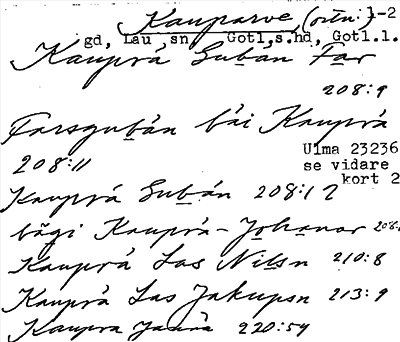 Kauparve, 1-2
gd, Lau sn Gotl,s.hd, Gotl.l.
Kauprá Guban Far
208:9
Farsgubán bäi Kauprá
208:11
Ulma 23236
se vidare
kort 2
Kauprá Gubán 208:12
bägi Kauprá-Johanar 208:
Kauprá Las Nilsn 210:8
Kauprá Las Jakupsn 213:9
Kaupra 220:54